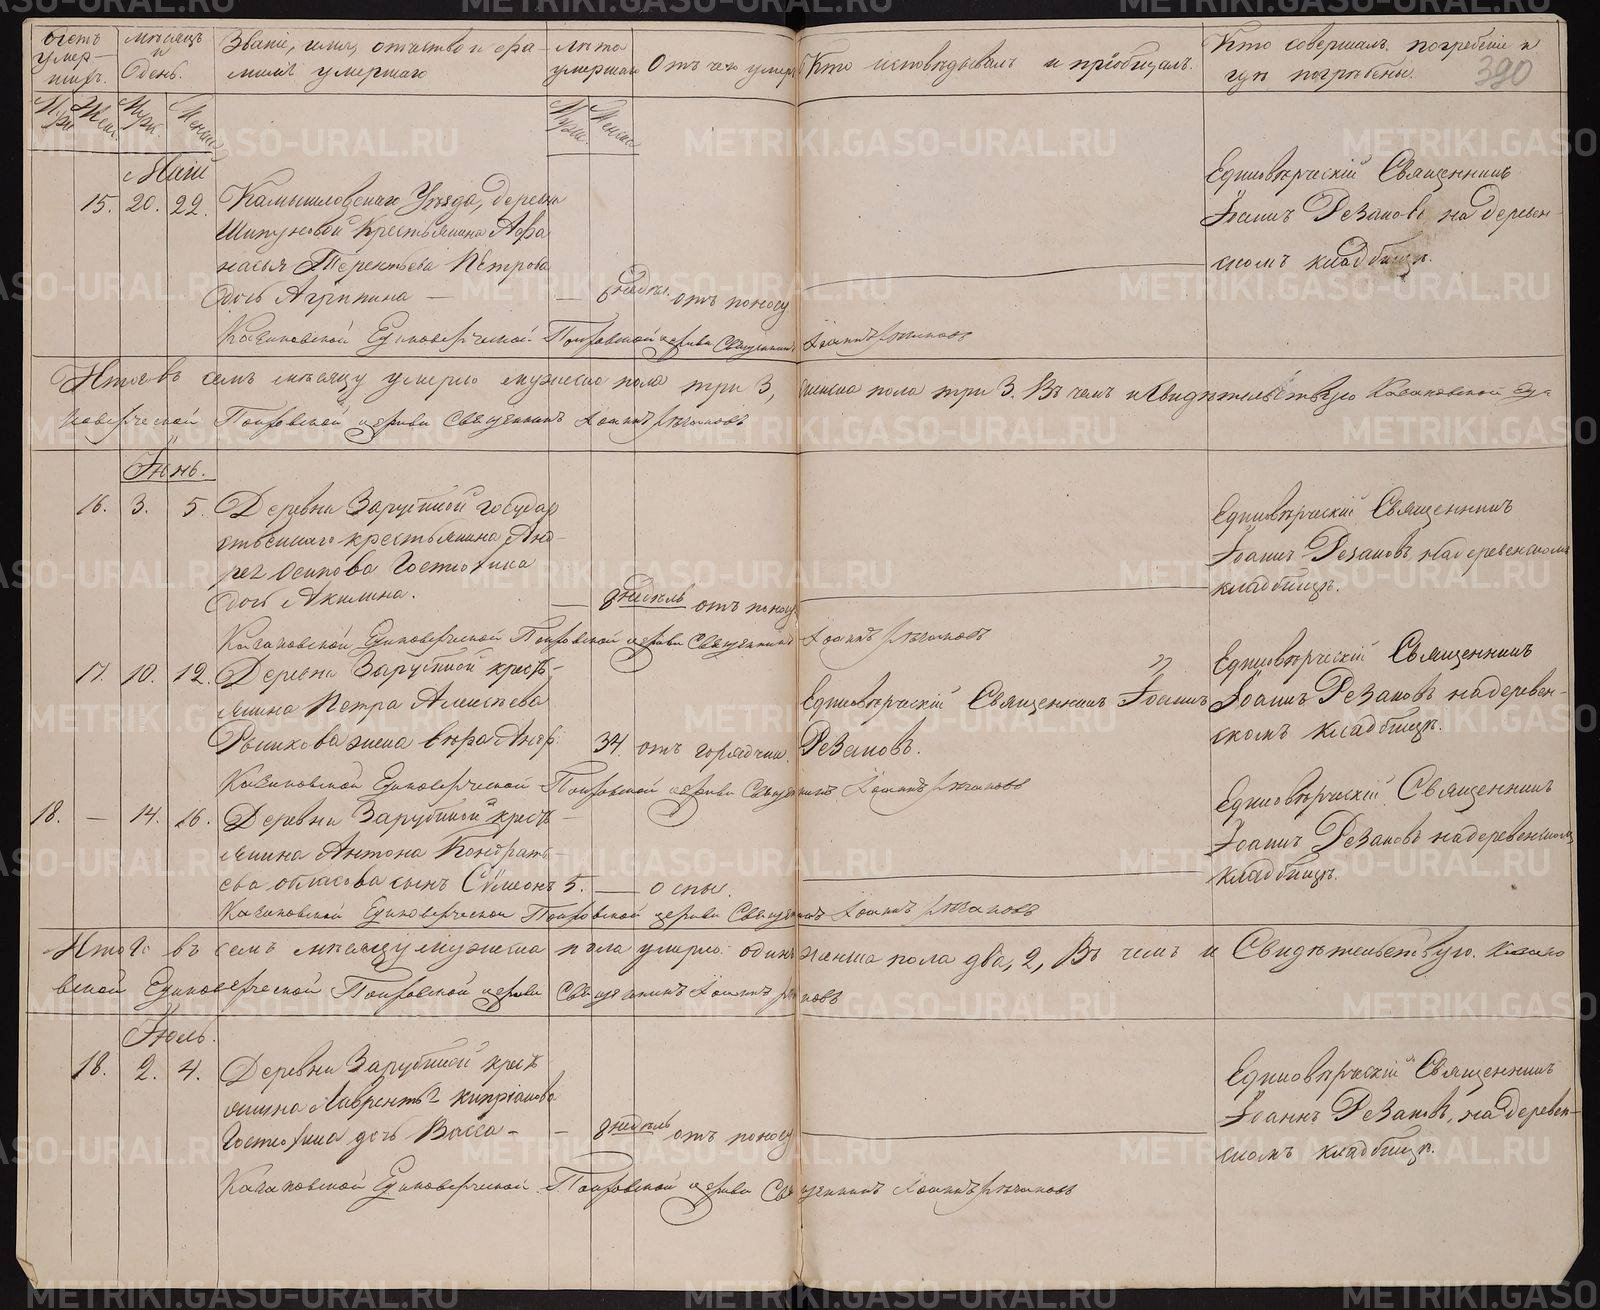 Счетъ умер-шихъ.
Мѣсяцъ и день.
Званіе, имя, отчество и фа-
милія умершаго
Лѣта умершаго
Отъ чего умеръ
Кто исповѣдывалъ и пріобщалъ.
Кто совершалъ погребеніе и
гдѣ погребены.
390
Муж. Жен. Муж. Женск.
Муж. Женск.
Май
15. 20. 22. Камышловскаго Уѣзда, деревни
Шипуновой Крестьянина Афа
насья Терентьева Петрова
дочь Агрипина — — 6 недѣль. отъ поносу
Единовѣрческій Священникъ
Іоаннъ Рѣзановъ на деревен-
скомъ кладбищѣ.
Единоверческой Покровской церкви Священникъ Іоаннъ
Итого въ семъ мѣсяцѣ умерло мужска пола три 3, женска пола три 3. Въ чемъ и свидѣтельствую Еди-
новерческой Покровской церкви Священникъ Іоаннъ
Іюнь.
16. 3. 5. Деревни Зарубиной государ
ственнаго крестьянина Анд-
рея Осипова Гостюхина
дочь Акилина. — 8 недѣль отъ поносу
Единовѣрческій Священникъ
Іоаннъ Рѣзановъ на деревенскомъ
кладбищѣ.
Единоверческой Покровской церкви Священникъ Іоаннъ
17. 10. 12. Деревни Зарубиной кресть-
янина Петра Алексѣева
жена 34. отъ горячки.
Единовѣрческій Священникъ Іоаннъ
Резановъ.
Единовѣрческій Священникъ
Іоаннъ Рѣзановъ на деревен-
скомъ кладбищѣ.
Единоверческой Покровской церкви Священникъ Іоаннъ
18. — 14. 16. Деревни Зарубиной кресть-
янина Антона Кондрать-
ева сынъ Сѵмеонъ 5. — оспы.
Единовѣрческій Священникъ
Іоаннъ Рѣзановъ на деревенскомъ
кладбищѣ.
Единоверческой Покровской церкви Священникъ Іоаннъ
Итого въ семъ мѣсяцу мужска пола умерло одинъ женска пола два, 2, Въ чемъ и Свидѣтельствую.
вской Единоверческой Покровской церкви Священникъ Іоаннъ
Іюль.
18. 2. 4. Деревни Зарубиной кресть
янина Лаврентья Кипріанова
Гостюхина дочь Васса — — 8 недѣль отъ поносу
Единовѣрческій Священникъ
Іоаннъ Рѣзановъ, на деревен-
скомъ кладбищѣ.
Единоверческой Покровской церкви Священникъ Іоаннъ
METRIKI.GASO-URAL.RU